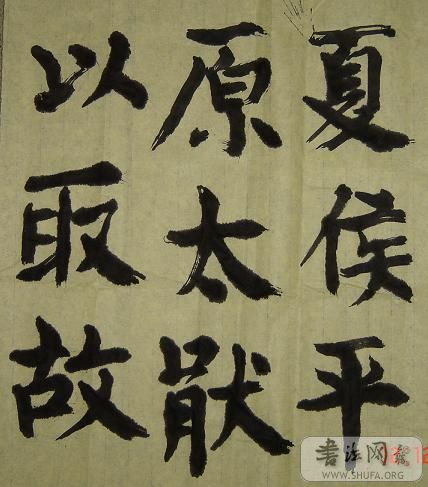 夏侯平
原太猒
以取故
書法网
WWW.SHUFA.ORG